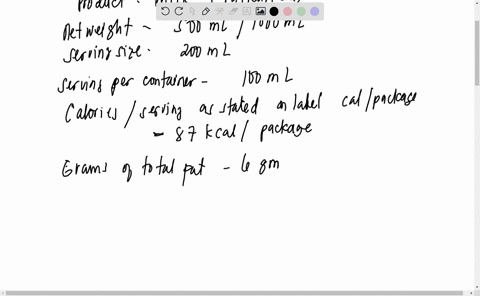 Product -
Net weight - 500 mL / 1000 mL
Serving size - 200 mL
Serving per container - 100 mL
Calories / serving as stated on label cal/package
- 87 kcal / package
Grams of total fat - 6 gm